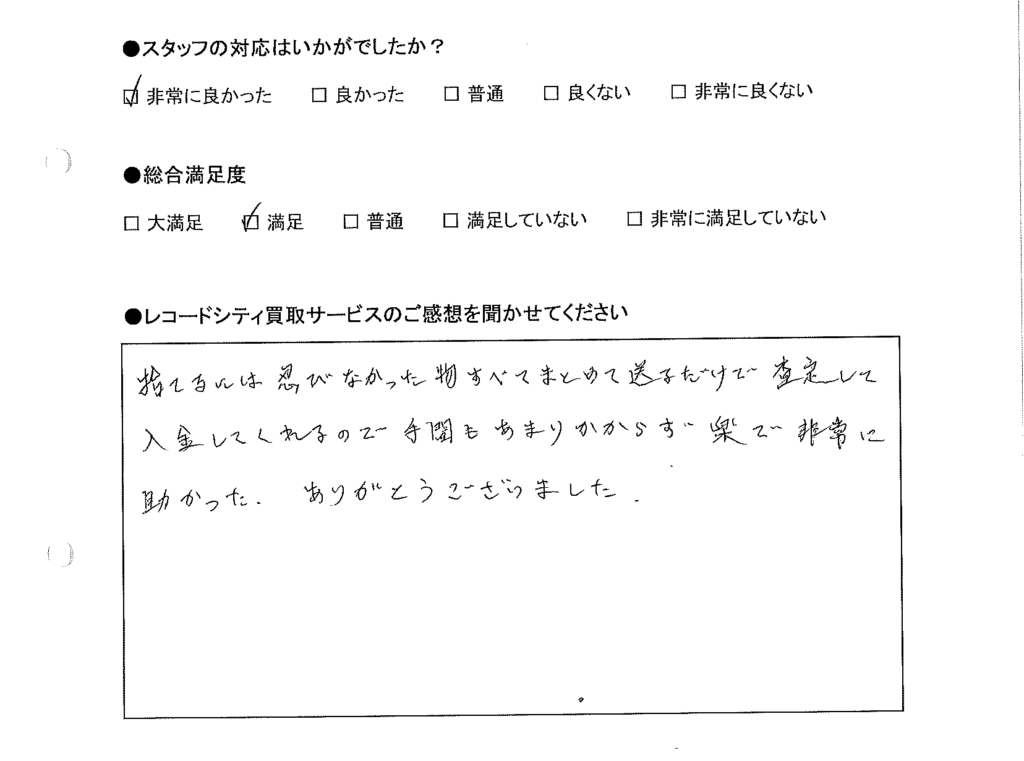 ●スタッフの対応はいかがでしたか？
☑ 非常に良かった □ 良かった □ 普通 □ 良くない □ 非常に良くない
●総合満足度
□ 大満足 ☑ 満足 □ 普通 □ 満足していない □ 非常に満足していない
●レコードシティ買取サービスのご感想を聞かせてください
捨てるには忍びなかった物すべてまとめて送るだけで査定して
入金してくれるので手間もあまりかからず楽で非常に
助かった. ありがとうございました.